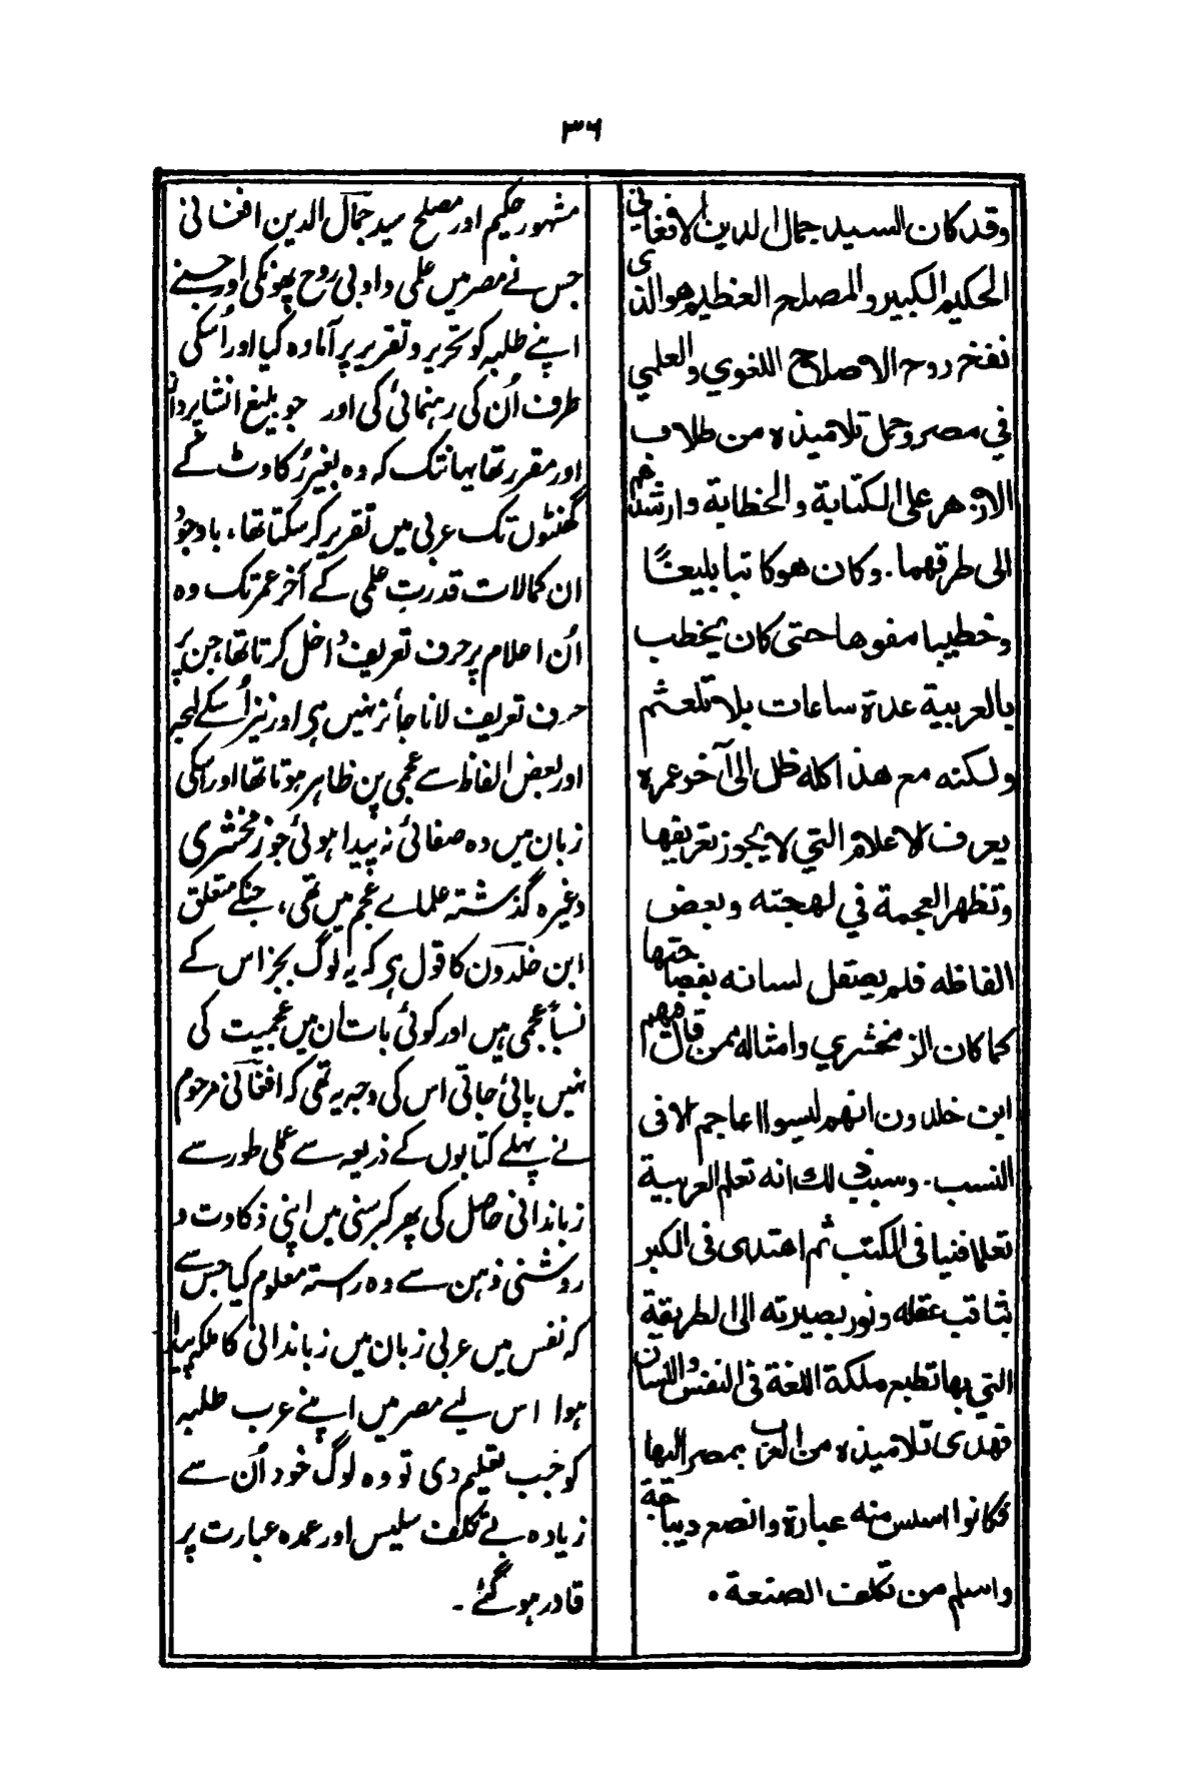 ٣٦
وقد كان السيد جمال الدين الافغاني
الحكيم الكبير والمصلح العظيم هو الذي
نفخ روح الاصلاح اللغوي والعلمي
في مصر وحمل تلاميذه من طلاب
الازهر على الكتابة والخطابة وارشدهم
الى طرقهما. وكان هو كاتبا بليغًا
وخطيبا مفوها حتى كان يخطب
بالعربية عدة ساعات بلا تلعثم
ولكنه مع هذا كله ظل الى آخر عمره
يعرف الاعلام التي لا يجوز تعريفها
وتظهر العجمة في لهجته وبعض
الفاظه فلم يصقل لسانه بفصاحتها
كما كان الزمخشري وامثاله ممن قال فيهم
ابن خلدون انهم ليسوا اعاجم الا فى
النسب. وسبب ذلك انه تعلم العربية
تعلما فنيا فى الكتب ثم اهتدى فى الكبر
بثاقب عقله ونور بصيرته الى الطريقة
التي بها تطبع ملكة اللغة فى النفس واللسان
فهدى تلاميذه من العرب بمصر اليها
فكانوا اسلس منه عبارة وانصع ديباجة
واسلم من تكلف الصنعة.
مشہور حکیم اور مصلح سید جمال الدین افغانی
جس نے مصر میں علمی و ادبی روح پھونکی اور جسنے
اپنے طلبہ کو تحریر و تقریر پر آمادہ کیا اور اُسکی
طرف اُن کی رہنمائی کی اور جو بلیغ انشا پرداز
اور مقرر تھا یہانتک کہ وہ بغیر رُکاوٹ کے
گھنٹوں تک عربی میں تقریر کر سکتا تھا، باوجود
ان کمالات قدرتِ علمی کے آخر عمر تک وہ
اُن اعلام پر حرف تعریف داخل کرتا تھا جن پر
حرف تعریف لانا جائز نہیں ہی اور نیز اُسکے لہجہ
اور بعض الفاظ سے عجمی پن ظاہر ہوتا تھا اور اسکی
زبان میں وہ صفائی نہ پیدا ہوئی جو زمخشری
وغیرہ گذشتہ علماے عجم میں تھی، جنکے متعلق
ابن خلدون کا قول ہی کہ یہ لوگ بجز اس کے
نسباً عجمی ہیں اور کوئی بات ان میں عجمیت کی
نہیں پائی جاتی اس کی وجہ یہ تھی کہ افغانی مرحوم
نے پہلے کتابوں کے ذریعہ سے عملی طور سے
زباندانی حاصل کی پھر کبر سنی میں اپنی ذکاوت و
روشنی ذہن سے وہ راستہ معلوم کیا جس سے
کہ نفس میں عربی زبان میں زباندانی کا ملکہ پیدا
ہوا اس لیے مصر میں اپنے عرب طلبہ
کو جب تعلیم دی تو وہ لوگ خود اُن سے
زیادہ بے تکلف سلیس اور عمدہ عبارت پر
قادر ہو گئے۔